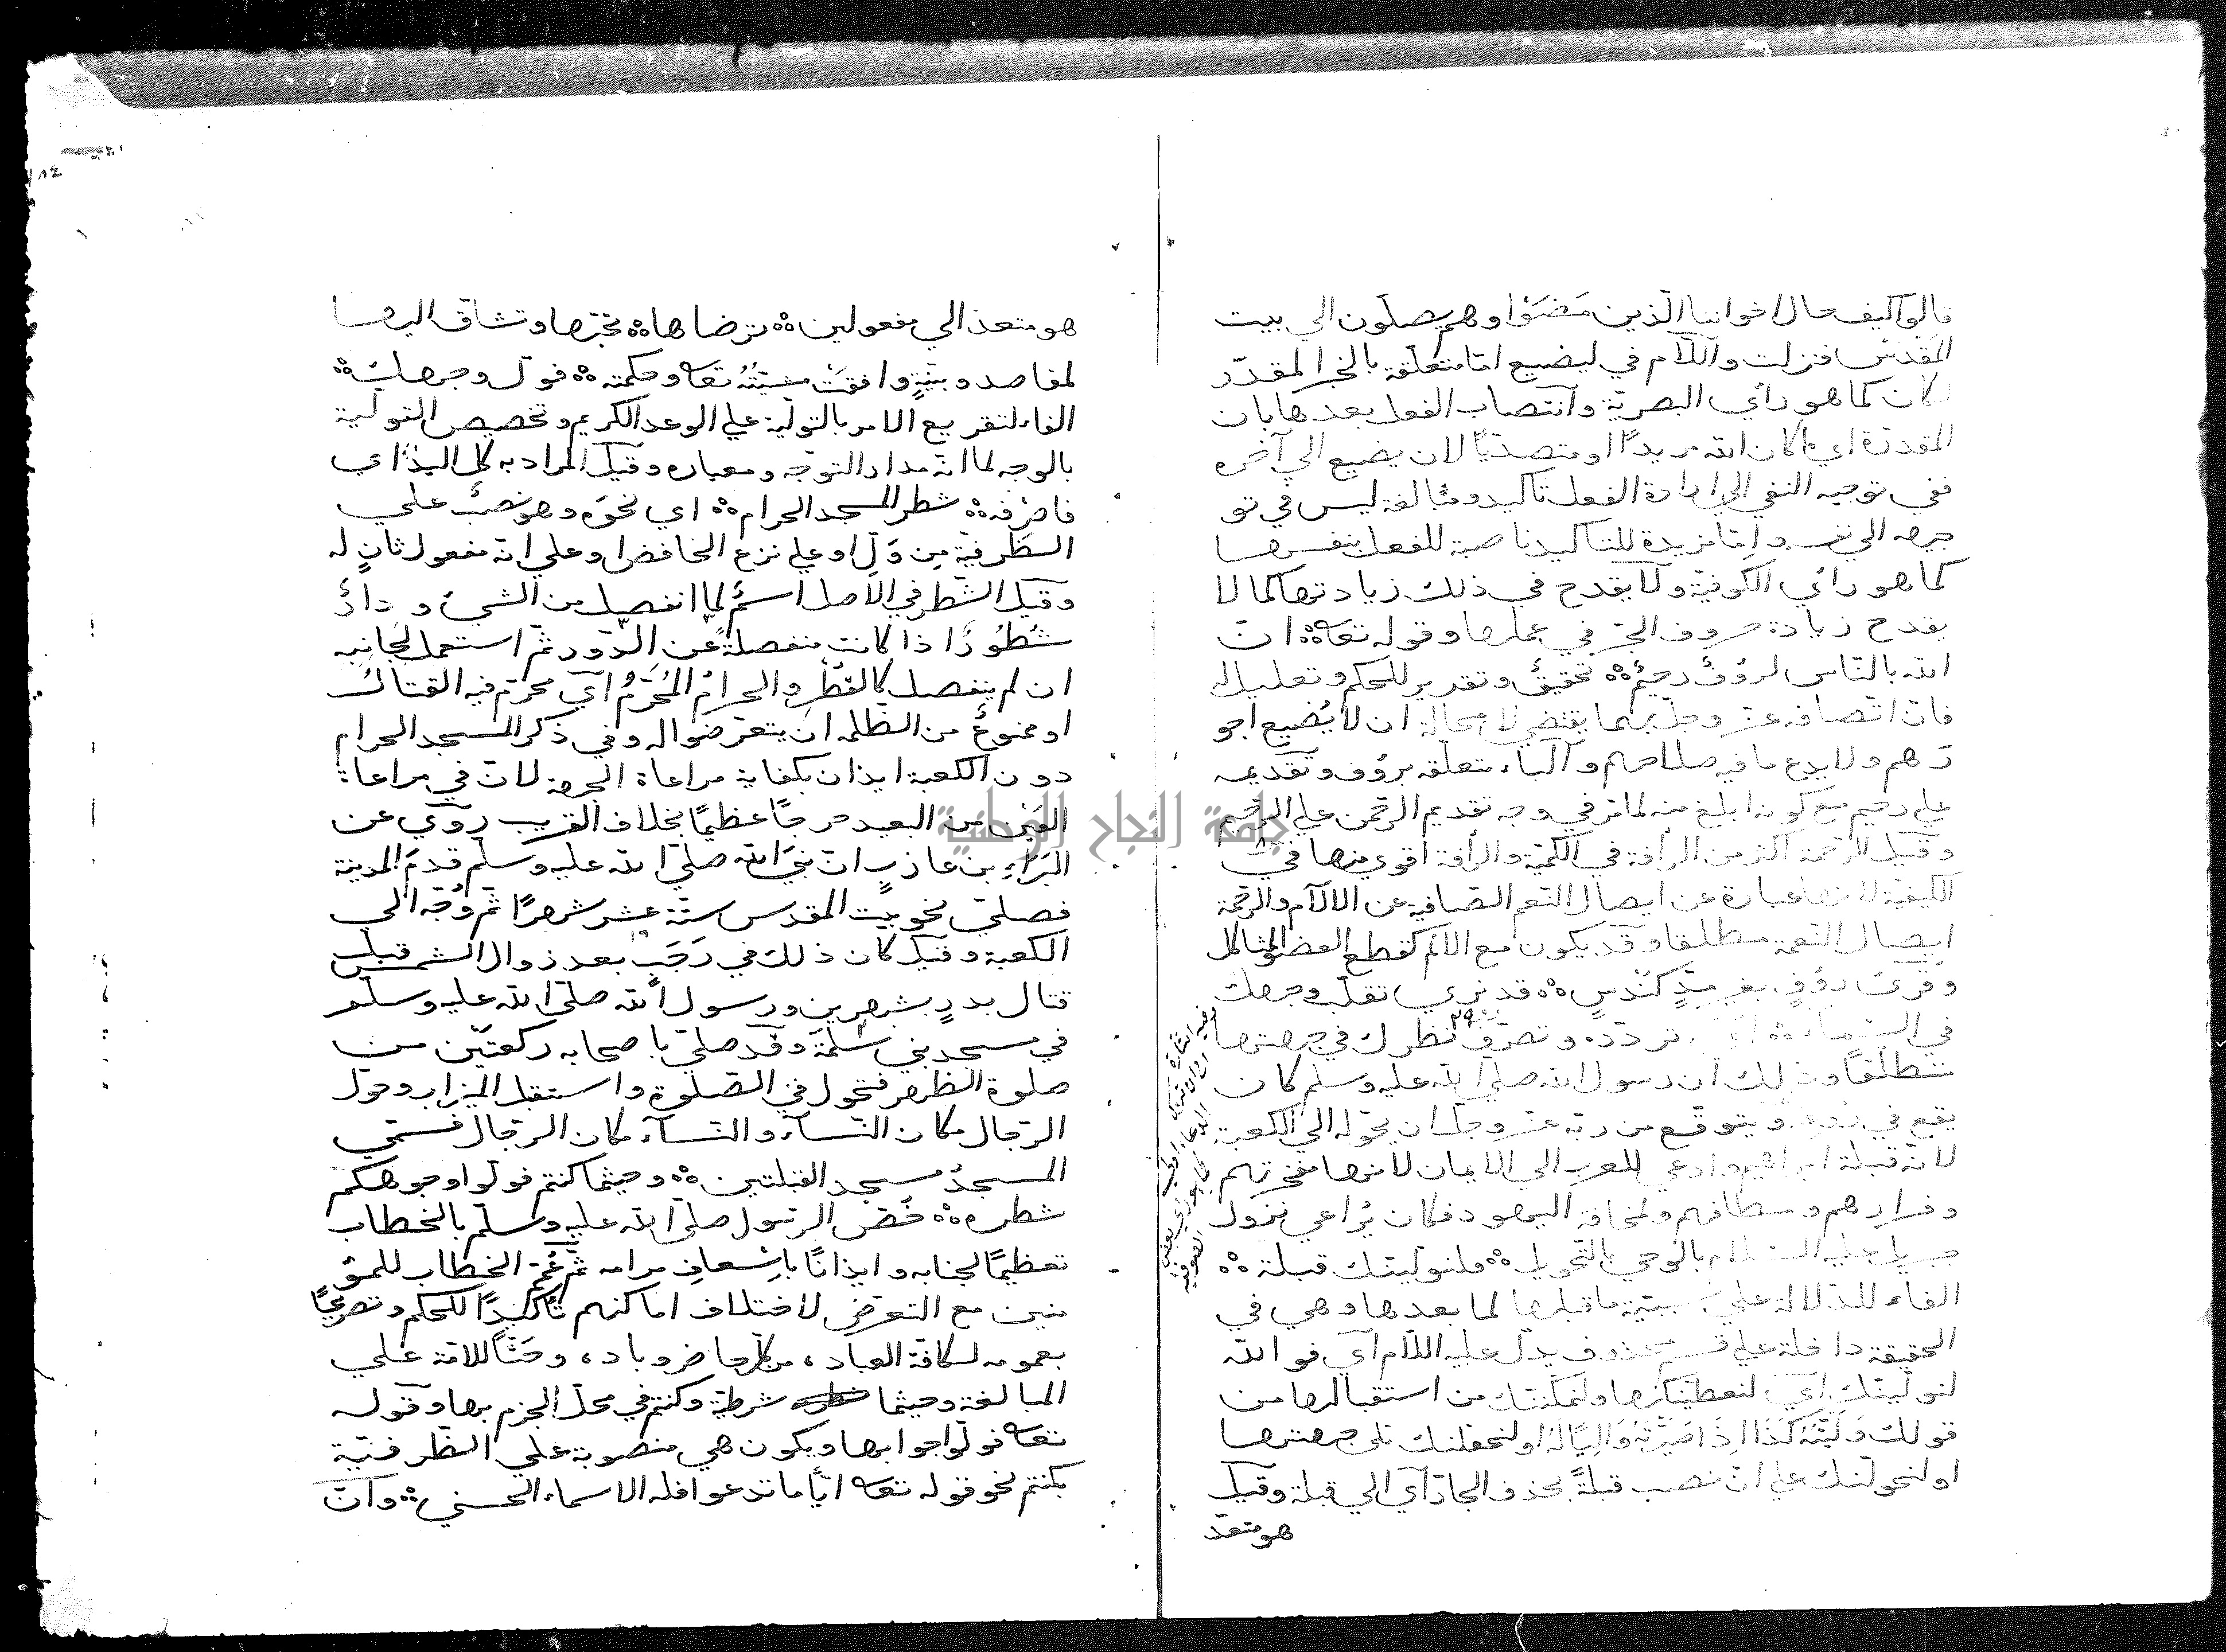 قالوا كيف حال اخواننا الّذين مَضَوْا وهم يصلّون الي بيت
المقدس فنزلت واللّام في ليضيع امّا متعلّقة بالخبر المقدّر
لكان كما هو رأي البصريّة وانتصاب الفعل بعدها بان
المقدّرة اي ما كان الله مريدًا او متصدّيًا لان يضيع الي آخره
ففي توجيه النفي الي ارادة الفعل تأكيد ومبالغة ليس في تو
جيهه الي نفسه وامّا مزيدة للتأكيد ناصبة للفعل بنفسها
كما هو رأي الكوفيّة ولا يقدح في ذلك زيادتها كما لا
يقدح زيادة حروف الجرّ في عملها وقوله تعه انّ
الله بالنّاس لرؤف رحيم تحقيق وتقرير للحكم وتعليل له
فانّ اتّصافه عزّ وجلّ بهما يقتضي لا محالة ان لا يُضيع اجو
رَهم ولا يدع ما فيه صلاحهم والباء متعلّقه برؤف وتقديمه
علي رحيم مع كونه ابلغ منه لما مرّ في وجه تقديم الرّحمن علي الرّحيم
وقيل الرّحمة اكثر من الرأفة في الكمّيّة والرأفة اقوي منها في
الكيفيّة لانها عبارة عن ايصال النّعم الصّافية عن الآلام والرّحمة
ايصال النّعمة مطلقا وقد يكون مع الالم كقطع العضو المتأكل
وقرئ رؤف بغير مدّ كندس قد نري تقلّب وجهك
في السّماء تردّده وتصرّف نظرك في جهتها
تطلّعًا وذلك ان رسول الله صلّي الله عليه وسلم كان
يقع في روعه ويتوقّع من ربّه عزّ وجلّ ان يحوّله الي الكعبة
لانّه قبلة ابراهيم وادعي للعرب الي الايمان لانها مفخرتهم
ومزارهم ومطافهم ولمخالفة اليهود فكان يُراعي نزول
جبريل عليه السّلام بالوحي بالتحويل فلنولّينّك قبلة
الفاء للدّلالة علي سببيّة ما قبلها لما بعدها وهي في
الحقيقة داخلة علي قسم محذوف يدلّ عليه اللّام اي فوالله
لنولّينّك اي لنعطينّكها ولنمكّننّك من استقبالها من
قولك وَلّيتُهُ كَذَا اِذَا صَيّرتَهُ وَالِيًا لَهُ او لنجعلنّك تلي جهتها
او لنحوّلنّك علي انّ نصب قبلةً بحذف الجارّ اي الي قبلة وقيل
هو متعدّ
هو متعدّ الي مفعولين ترضاها تحبّها وتشتاق اليها
لمقاصد دينيّة وافقت مشيّته تعه وحكمته فولّ وجهك
الفاء لتفريع الامر بالتّولية علي الوعد الكريم وتخصيص التولية
بالوجه لما انّه مدار التوجّه ومعياره وقيل المراد به كلّ البدن اي
فاصرفه شطر المسجد الحرام اي نحوَه وهو نصبٌ علي
الظّرفيّة مِن وَلّ او علي نزع الخافض او علي انّه مفعول ثانٍ له
وقيل الشّطر في الاصل اسمٌ لما انفصل من الشيئ ودارٌ
شُطُورٌ اذا كانت منفصلةً عن الدّور ثمّ استعمل لجانبه
ان لم ينفصل كالقُطْرِ والحرامُ المُحَرّمُ اي محرّم فيه القتالُ
او ممنوعٌ من الظّلمه ان يتعرّضوا له وفي ذكر المسجد الحرام
دون الكعبة ايذان بكفاية مراعاة الجهة لانّ في مراعاة
العَيْن من البعيد حرجًا عظيمًا بخلاف القريب رُوي عن
البَرَاءِ بن عازبٍ انّ نبيّ الله صلّي الله عليه وسلّم قدم المدينة
فصلّي نحو بيت المقدس ستّة عشر شهرًا ثمّ وُجّه الي
الكعبة وقيل كان ذلك في رَجَبٍ بعد زوال الشمس قبل
قتال بدرٍ بشهرين ورسول الله صلّي الله عليه وسلّم
في مسجد بني سَلَمَة وقد صلّي باصحابه ركعتين من
صلوة الظّهر فتحوّل في الصّلوة واستقبل الميزاب وحوّل
الرّجال مكان النّسآء والنّسآء مكان الرّجال فسمّي
المسجدُ مسجد القبلتين وحيثما كنتم فولّوا وجوهكم
شطره خُصّ الرسول صلّي الله عليه وسلّم بالخطاب
تعظيمًا لجنابه وايذانًا باِسْعافِ مرامه ثمّ عُمّم الخطاب للمؤ
منين مع التعرّض لاختلاف اماكنهم تأكيدًا للحكم وتصريحًا
بعمومه لكافّة العباد، من كلّ حاضر وباد، وحَثًّا للامّة علي
المبالغة وحيثما شرطيّة وكنتم في محلّ الجزم بها وقوله
تعه فولّوا جوابها ويكون هي منصوبة علي الظّرفيّة
بكنتم نحو قوله تعه ايًّا ما تدعوا فله الاسماء الحسني وانّ
جامعة النجاح الوطنية